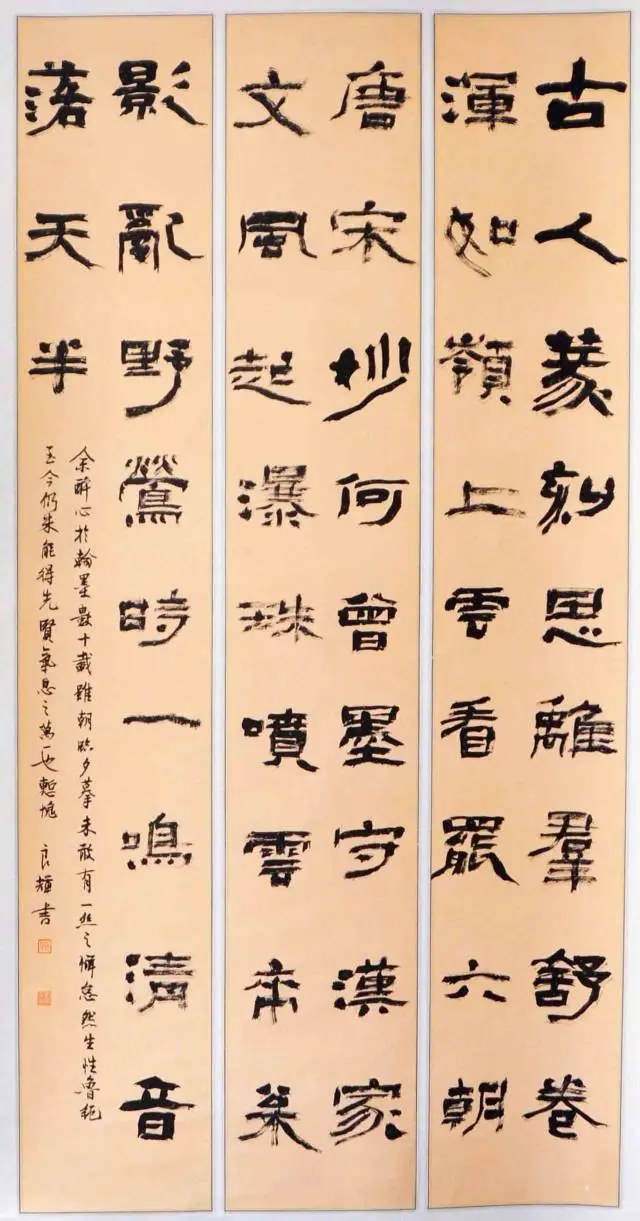 古人篆刻思離羣舒卷
渾如嶺上雲看罷六朝
唐宋妙何曾墨守漢家
文風起瀑珠噴雲
影亂野鶯時一鳴清音
落天半
余醉心於翰墨數十載雖朝臨夕摹未敢有一丝之懈怠然生性魯鈍
至今仍未能得先賢氣息之萬一也慙愧 良輝書